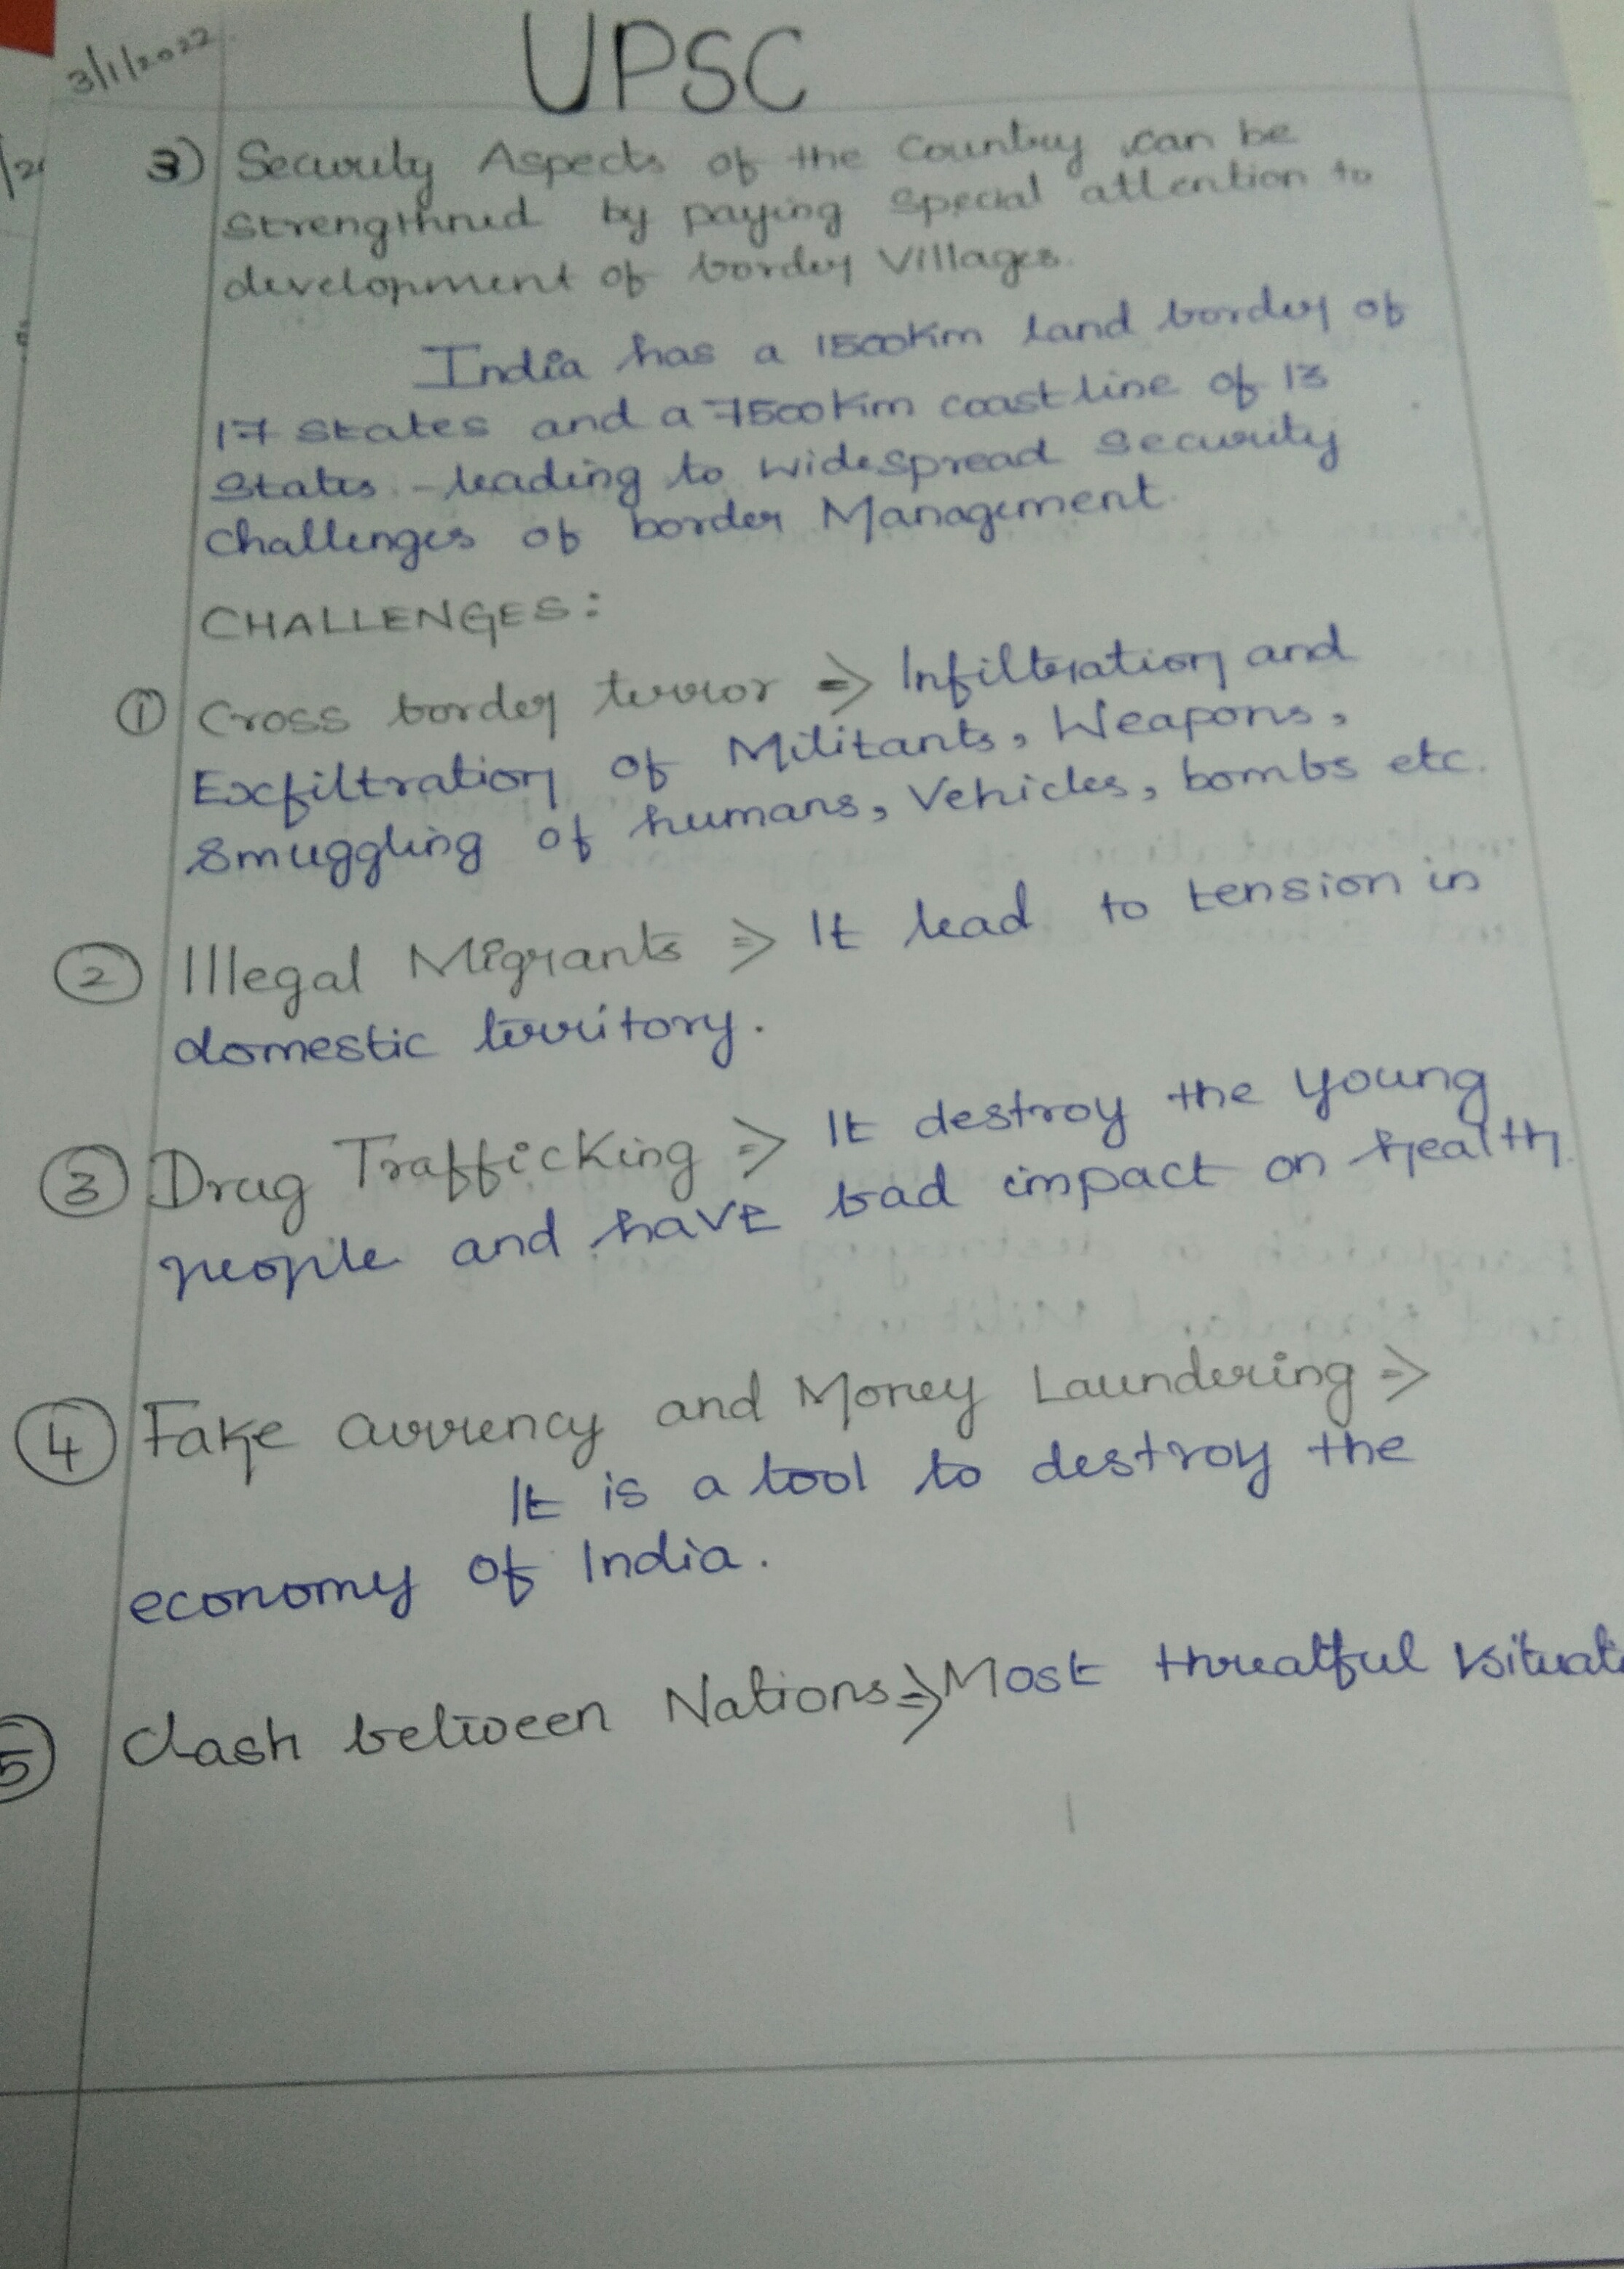 3/1/2022
UPSC
3) Security Aspects of the Country can be
Strengthned by paying special attention to
development of border Villages.
India has a 1500Km land border of
17 States and a 7500Km coastline of 13
States - leading to widespread security
challenges of border Management
CHALLENGES:
① Cross border terror ⇒ Infiltration and
Exfiltration of Militants, Weapons,
Smuggling of humans, Vehicles, bombs etc.
② Illegal Migrants ⇒ It lead to tension in
domestic territory.
③ Drug Trafficking ⇒ It destroy the young
people and have bad impact on health.
④ Fake currency and Money Laundering ⇒
It is a tool to destroy the
economy of India.
⑤ Clash between Nations ⇒ Most threatful